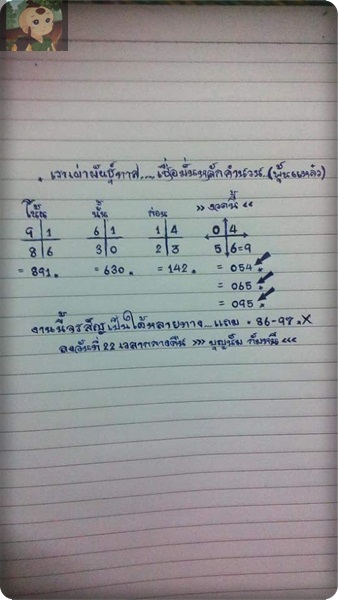 . เราเผ่าพันธุ์ทาส.... เชื่อมั่นหลักคำนวน (ฟุ้นแหล๋ว)
โน้น นั้น ก่อน » งวดนี้ «
9 1 6 1 1 4 0 4
8 6 3 0 2 3 5 6=9
= 891. = 630. = 142. = 054.
= 065.
= 095.
งานนี้จรสัญเป็นได้หลายทาง... แถม . 86-98.X
ลงวันที่ 22 เวลากลางคืน »»